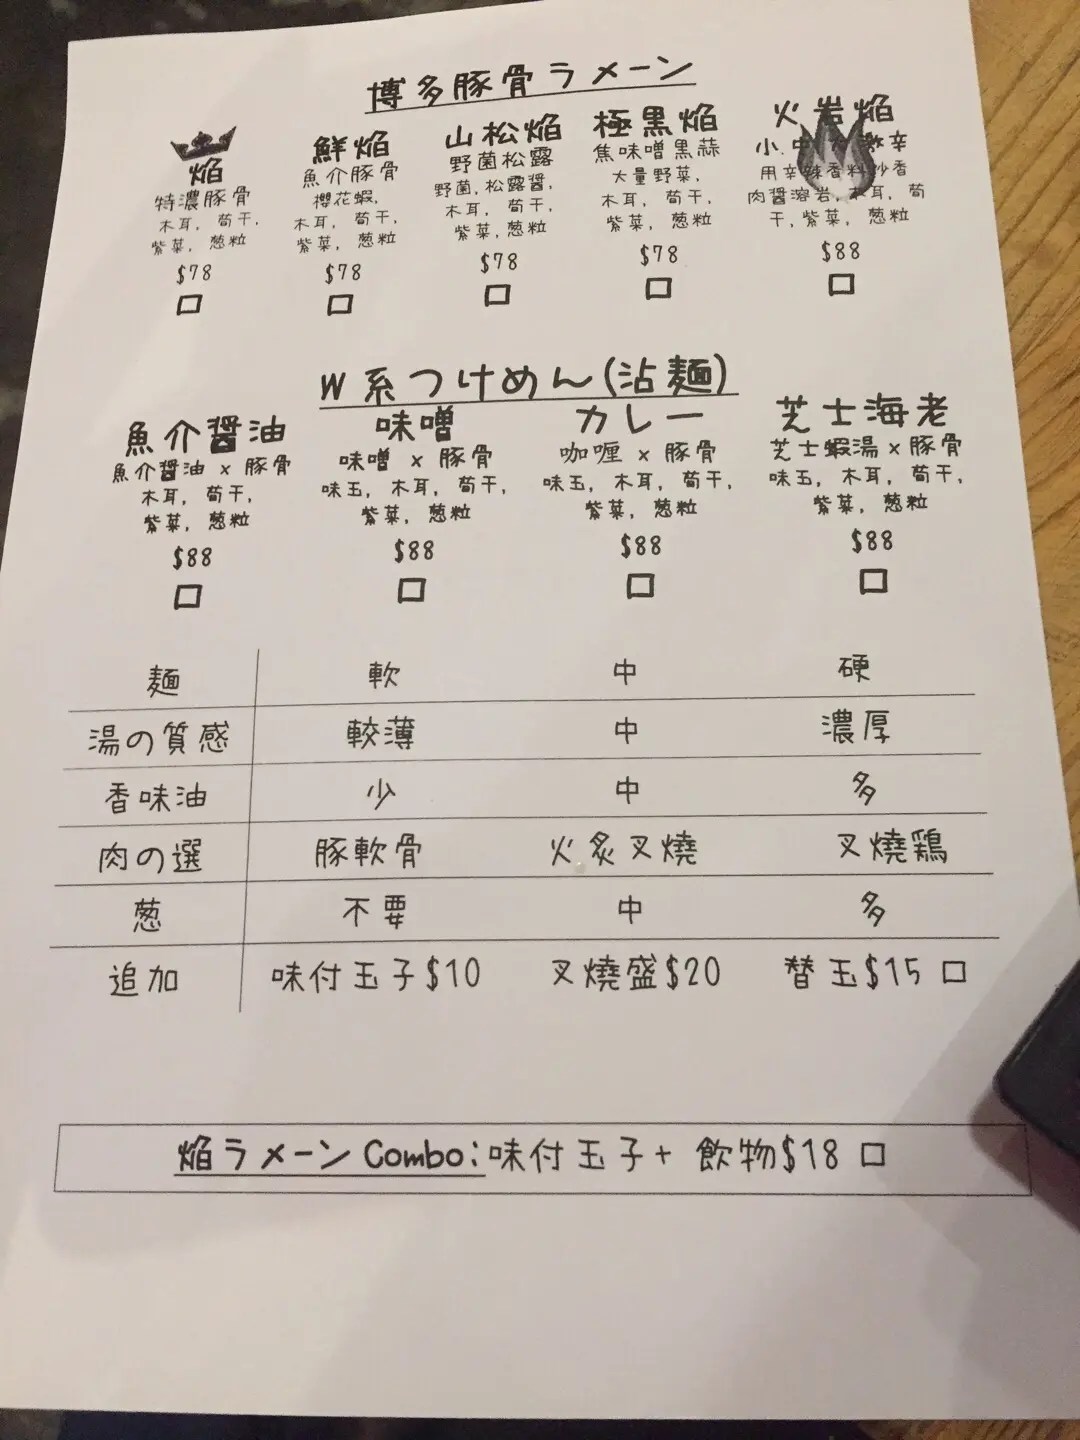 博多豚骨ラメーン
焔
特濃豚骨
木耳, 荀干,
紫菜, 葱粒
$78
鮮焔
魚介豚骨
櫻花蝦,
木耳, 荀干,
紫菜, 葱粒
$78
山松焔
野菌松露
野菌,松露醤,
木耳, 荀干,
紫菜,葱粒
$78
極黒焔
焦味噌黒蒜
大量野菜,
木耳, 荀干,
紫菜, 葱粒
$78
火岩焔
小.中
辛
用辛辣香料炒香
肉醤溶岩,木耳, 荀
干,紫菜, 葱粒
$88
W系つけめん(沾麺)
魚介醤油
魚介醤油 x 豚骨
木耳, 荀干,
紫菜, 葱粒
$88
味噌
味噌 x 豚骨
味玉, 木耳, 荀干,
紫菜, 葱粒
$88
カレー
咖喱 x 豚骨
味玉, 木耳, 荀干,
紫菜, 葱粒
$88
芝士海老
芝士蝦湯 x 豚骨
味玉, 木耳, 荀干,
紫菜, 葱粒
$88
麺 軟 中 硬
湯の質感 較薄 中 濃厚
香味油 少 中 多
肉の選 豚軟骨 火炙叉燒 叉燒鶏
葱 不要 中 多
追加 味付玉子$10 叉燒盛$20 替玉$15
焔ラメーン Combo:味付玉子+ 飲物$18